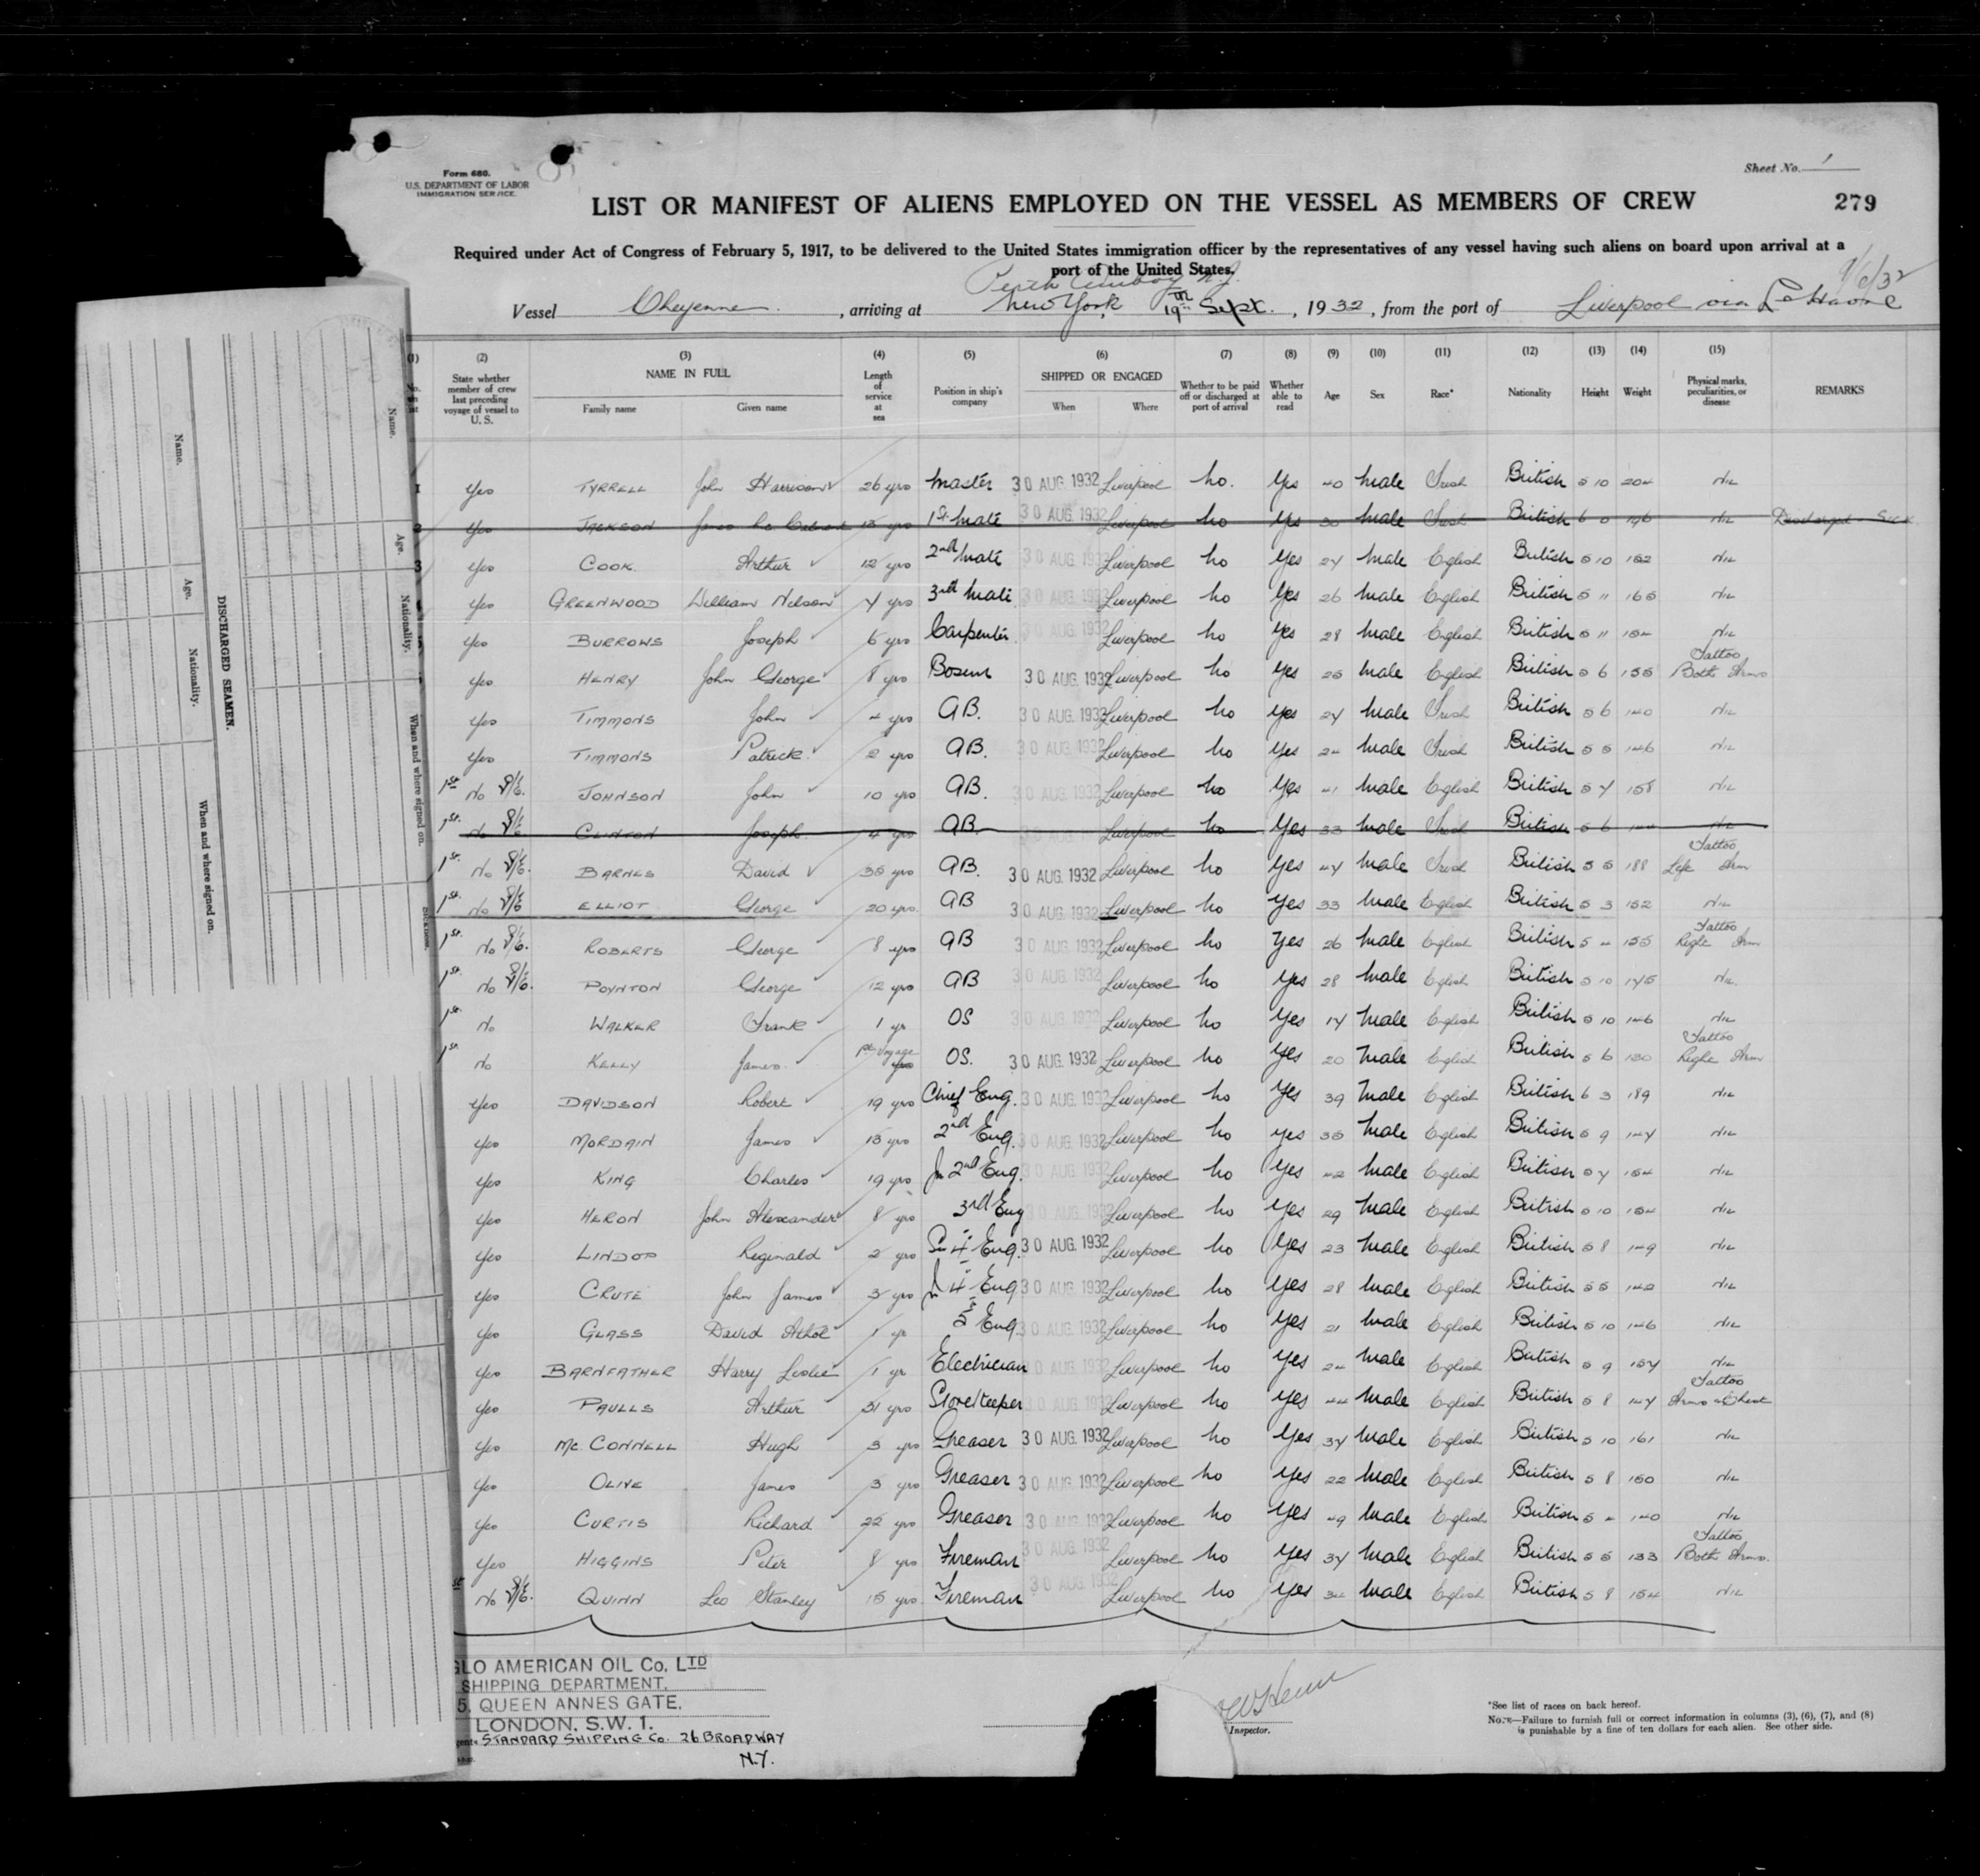 Form 680.
U.S. DEPARTMENT OF LABOR
IMMIGRATION SERVICE.
Sheet No. 1
LIST OR MANIFEST OF ALIENS EMPLOYED ON THE VESSEL AS MEMBERS OF CREW
279
Required under Act of Congress of February 5, 1917, to be delivered to the United States immigration officer by the representatives of any vessel having such aliens on board upon arrival at a
port of the United States.
Perth Amboy N.J.
Vessel Cheyenne, arriving at New York, 19th Sept., 1932, from the port of Liverpool via Le Havre
(1) (2) (3) (4) (5) (6) (7) (8) (9) (10) (11) (12) (13) (14) (15)
State whether member of crew last preceding voyage of vessel to U. S. NAME IN FULL Family name Given name Length of service at sea Position in ship's company SHIPPED OR ENGAGED When Where Whether to be paid off or discharged at port of arrival Whether able to read Age Sex Race* Nationality Height Weight Physical marks, peculiarities, or disease REMARKS
1 Yes TYRRELL John Harrison 26 yrs Master 30 AUG 1932 Liverpool No. Yes 40 Male Irish British 5 10 204 Nil
2 Yes JACKSON James 15 yrs 1st Mate 30 AUG 1932 Liverpool No Yes 30 Male Irish British 6 0 196 Nil Discharged - Sick
3 Yes COOK Arthur 12 yrs 2nd Mate 30 AUG 1932 Liverpool No Yes 27 Male English British 5 10 182 Nil
Yes GREENWOOD William Nelson 7 yrs 3rd Mate 30 AUG 1932 Liverpool No Yes 26 Male English British 5 11 165 Nil
Yes BURROWS Joseph 6 yrs Carpenter 30 AUG 1932 Liverpool No Yes 28 Male English British 5 11 154 Nil
Yes HENRY John George 8 yrs Bosun 30 AUG 1932 Liverpool No Yes 25 Male English British 5 6 155 Tattoo Both Arms
Yes TIMMONS John 4 yrs AB. 30 AUG 1932 Liverpool No Yes 27 Male Irish British 5 6 140 Nil
Yes TIMMONS Patrick 2 yrs AB. 30 AUG 1932 Liverpool No Yes 24 Male Irish British 5 5 146 Nil
1st No JOHNSON John 10 yrs AB. 30 AUG 1932 Liverpool No Yes 41 Male English British 5 7 158 Nil
1st. No CLINTON Joseph 4 yrs AB. Liverpool No Yes 33 Male Irish British 5 6 144 Nil
1st. No BARNES David 35 yrs AB. 30 AUG 1932 Liverpool No Yes 47 Male Irish British 5 5 188 Tattoo Left Arm
1st. No ELLIOT George 20 yrs. AB 30 AUG 1932 Liverpool No Yes 33 Male English British 5 3 152 Nil
1st. No ROBERTS George 8 yrs AB 30 AUG 1932 Liverpool No Yes 26 Male English British 5 4 155 Tattoo Right Arm
1st. No POYNTON George 12 yrs AB 30 AUG 1932 Liverpool No Yes 28 Male English British 5 10 175 Nil.
1st. No WALKER Frank 1 yr OS 30 AUG 1932 Liverpool No Yes 17 Male English British 5 10 146 Nil
1st. No KELLY James. 1st Voyage OS. 30 AUG 1932 Liverpool No Yes 20 Male English British 5 6 130 Tattoo Right Arm
Yes DAVIDSON Robert 19 yrs Chief Eng. 30 AUG 1932 Liverpool No Yes 39 Male English British 6 3 189 Nil
Yes MORDAIN James 15 yrs 2nd Eng. 30 AUG 1932 Liverpool No Yes 35 Male English British 5 9 147 Nil
Yes KING Charles 19 yrs Jr 2nd Eng. 30 AUG 1932 Liverpool No Yes 42 Male English British 5 7 154 Nil
Yes HERON John Alexander 8 yrs 3rd Eng 30 AUG 1932 Liverpool No Yes 29 Male English British 5 10 154 Nil
Yes LINDOP Reginald 2 yrs Sr 4 Eng. 30 AUG 1932 Liverpool No Yes 23 Male English British 5 8 149 Nil
Yes CRUTE John James 3 yrs Jr 4 Eng 30 AUG 1932 Liverpool No Yes 28 Male English British 5 5 142 Nil
Yes GLASS David Athol 1 yr 5 Eng. 30 AUG 1932 Liverpool No Yes 21 Male English British 5 10 146 Nil
Yes BARNFATHER Harry Leslie 1 yr Electrician 30 AUG 1932 Liverpool No Yes 24 Male English British 5 9 157 Nil
Yes PAULLS Arthur 31 yrs Storekeeper 30 AUG 1932 Liverpool No Yes 44 Male English British 5 8 147 Tattoo Arms & Chest
Yes Mc CONNELL Hugh 3 yrs Greaser 30 AUG 1932 Liverpool No Yes 37 Male English British 5 10 161 Nil
Yes OLIVE James 3 yrs Greaser 30 AUG 1932 Liverpool No Yes 22 Male English British 5 8 150 Nil
Yes CURTIS Richard 22 yrs Greaser 30 AUG 1932 Liverpool No Yes 49 Male English British 5 4 140 Nil
Yes HIGGINS Peter 8 yrs Fireman 30 AUG 1932 Liverpool No Yes 37 Male English British 5 5 133 Tattoo Both Arms.
No QUINN Leo Stanley 15 yrs Fireman 30 AUG 1932 Liverpool No Yes 34 Male English British 5 8 154 Nil
GLO AMERICAN OIL Co. LTD
SHIPPING DEPARTMENT,
5. QUEEN ANNES GATE,
LONDON, S.W. 1.
STANDARD SHIPPING Co. 26 BROADWAY
N.Y.
Inspector.
*See list of races on back hereof.
NOTE—Failure to furnish full or correct information in columns (3), (6), (7), and (8)
is punishable by a fine of ten dollars for each alien. See other side.
DISCHARGED SEAMEN.
Name. Age. Nationality. When and where signed on.
Name. Age. Nationality. When and where signed on.